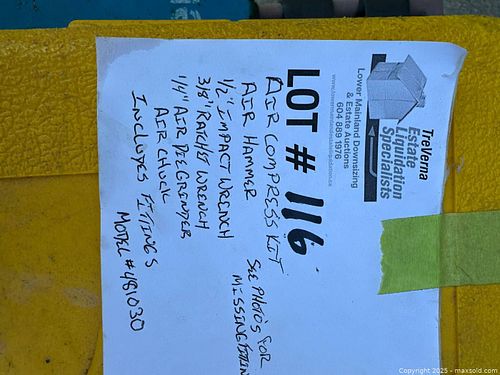 TreVerna
Estate
Liquidation
Specialists
Lower Mainland Downsizing
& Estate Auctions
604 889 1976
LOT # 116
AIR COMPRESS KIT
AIR HAMMER
1/2" IMPACT WRENCH
3/8" RATCHET WRENCH
1/4" AIR DEEGRINDER
AIR CHUCK
INCLUDES FITTINGS
MODEL # 481030
SEE PHOTO'S FOR
MISSING
Copyright 2025 - maxsold.com